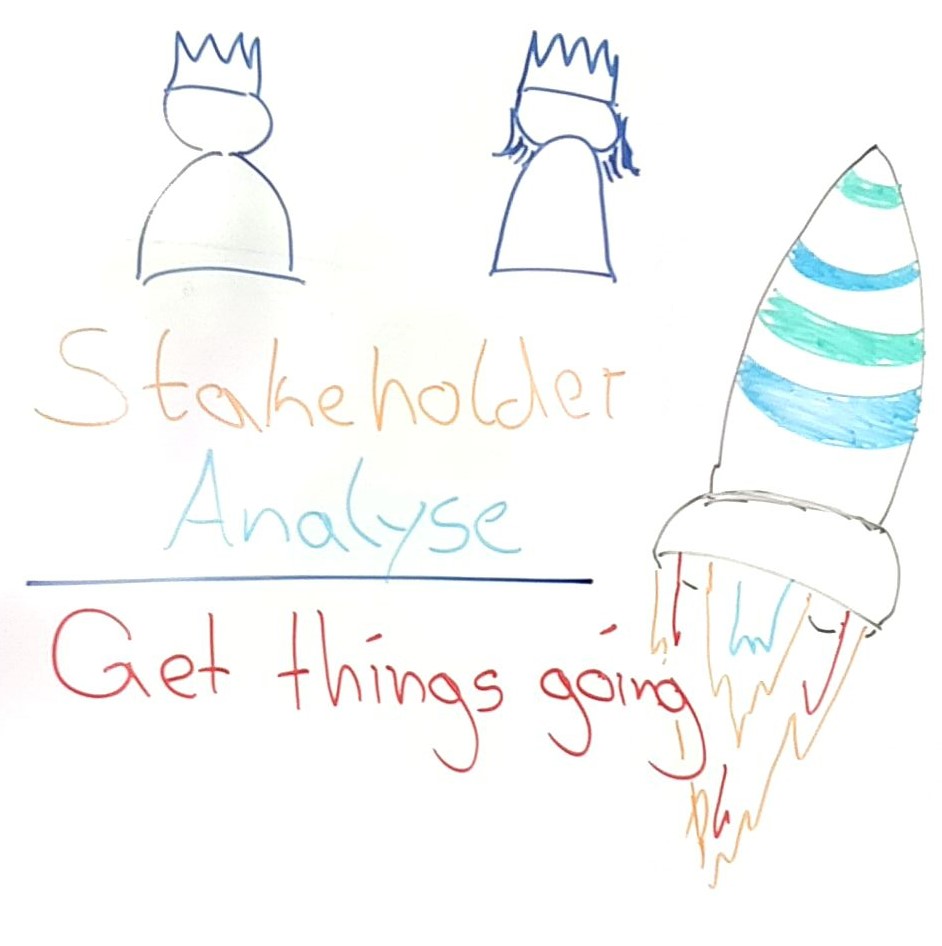 Stakeholder
Analyse
Get things going